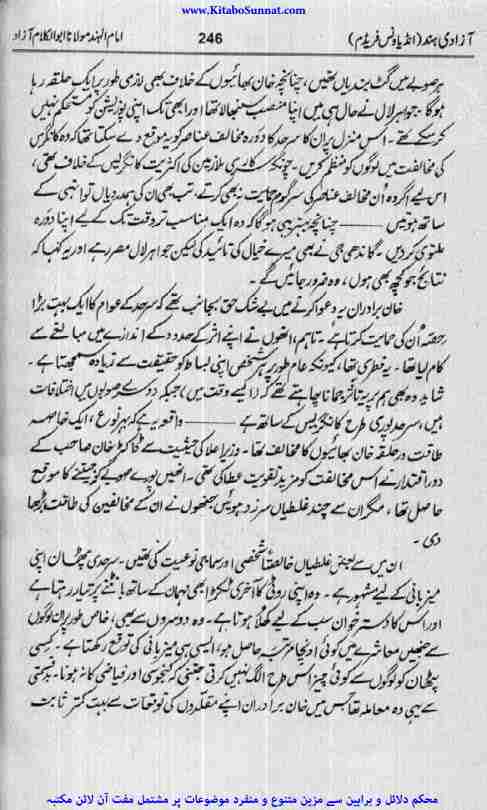 www.KitaboSunnat.com
آزادی ہند (انڈیا ونس فریڈم) 246 امام الہند مولانا ابو الکلام آزاد
ہر صوبے میں گٹ بندیاں تھیں، چنانچہ خان بھائیوں کے خلاف بھی لازمی طور پر ایک حلقہ رہا
ہوگا۔ جواہر لال نے حال ہی میں اپنا منصب سنبھالا تھا اور ابھی تک اپنی پوزیشن کو مستحکم نہیں
کرسکے تھے۔ اس منزل پر ان کا سرحد کا دورہ مخالف عناصر کو یہ موقع دے سکتا تھا کہ وہ کانگرس
کی مخالفت میں لوگوں کو منظم کریں۔ چونکہ سرکاری ملازمین کی اکثریت کانگریس کے خلاف تھی،
اس لیے اگر وہ اُن مخالف عناصر کی سرگرم حمایت نہ بھی کرتے، تب بھی ان کی ہمدردیاں تو انہی کے
ساتھ ہوتیں ـــــــ چنانچہ بہتر یہی ہوگا کہ وہ ایک مناسب تر وقت تک کے لیے اپنا دورہ
ملتوی کر دیں۔ گاندھی جی نے بھی میرے خیال کی تائید کی لیکن جواہر لال مصر رہے اور یہ کہا کہ
نتائج جو کچھ بھی ہوں، وہ ضرور جائیں گے۔
خان برادران یہ دعوا کرنے میں بے شک حق بجانب تھے کہ سرحد کے عوام کا ایک بہت بڑا
حصّہ اُن کی حمایت کرتا ہے۔ تاہم، انھوں نے اپنے اثر کے حدود کے اندازے میں مبالغے سے
کام لیا تھا۔ یہ فطری تھا، کیونکہ عام طور پر ہر شخص اپنی بساط کو حقیقت سے زیادہ سمجھتا ہے۔
شاید وہ بھی ہم پر یہ تاثر جمانا چاہتے تھے کہ (ایسے وقت میں) جبکہ دوسرے صوبوں میں اختلافات
ہیں، سرحد پوری طرح کانگریس کے ساتھ ہے ـــــــ واقعہ یہ ہے کہ بہر نوع، ایک خاصہ
طاقت ور حلقہ خان بھائیوں کا مخالف تھا۔ وزیر اعلا کی حیثیت سے ڈاکٹر خان صاحب کے
دورِ اقتدار نے اس مخالفت کو مزید تقویت عطا کی تھی۔ انھیں پورے صوبے کو جیتنے کا موقع
حاصل تھا، مگر ان سے چند غلطیاں سرزد ہوئیں جنھوں نے ان کے مخالفین کی طاقت بڑھا
دی۔
ان میں سے بعض غلطیاں خالصتاً شخصی اور سماجی نوعیت کی تھیں۔ سرحدی پٹھان اپنی
میزبانی کے لیے مشہور ہے۔ وہ اپنی روٹی کا آخری ٹکڑا بھی مہمان کے ساتھ بانٹنے پر تیار رہتا ہے
اور اس کا دسترخوان سب کے لیے کھلا ہوتا ہے۔ وہ دوسروں سے بھی، خاص طور پر ان لوگوں
سے جنھیں معاشرے میں کوئی اونچا مرتبہ حاصل ہو، ایسی ہی میزبانی کی توقع رکھتا ہے۔ کسی
پٹھان کو لوگوں سے کوئی چیز اس طرح الگ نہیں کرتی جتنی کہ کنجوسی اور فیاضی کا نہ ہونا۔ بدقسمتی
سے یہی وہ معاملہ تھا جس میں خان برادران اپنے مقلدوں کی توقعات سے بہت کمتر ثابت
محکم دلائل و براہین سے مزین متنوع و منفرد موضوعات پر مشتمل مفت آن لائن مکتبہ